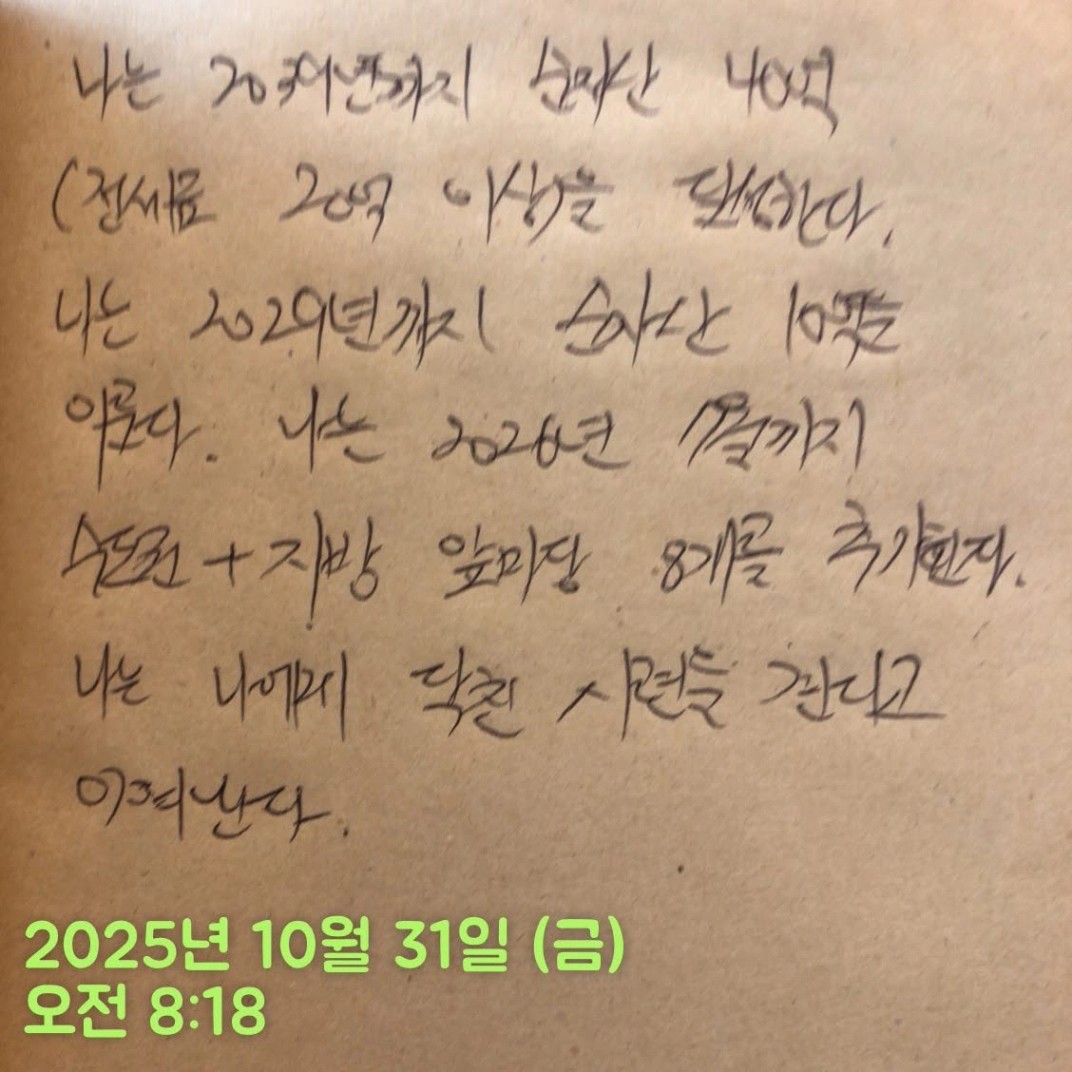 나는 2039년까지 순자산 40억
(전세금 20억 이상)을 달성한다.
나는 2029년까지 순자산 10억을
이룬다. 나는 2026년 까지
수도권 + 지방 앞마당 8개를 추가한다.
나는 나에게 닥친 시련들 견디고
이겨난다.
2025년 10월 31일 (금)
오전 8:18